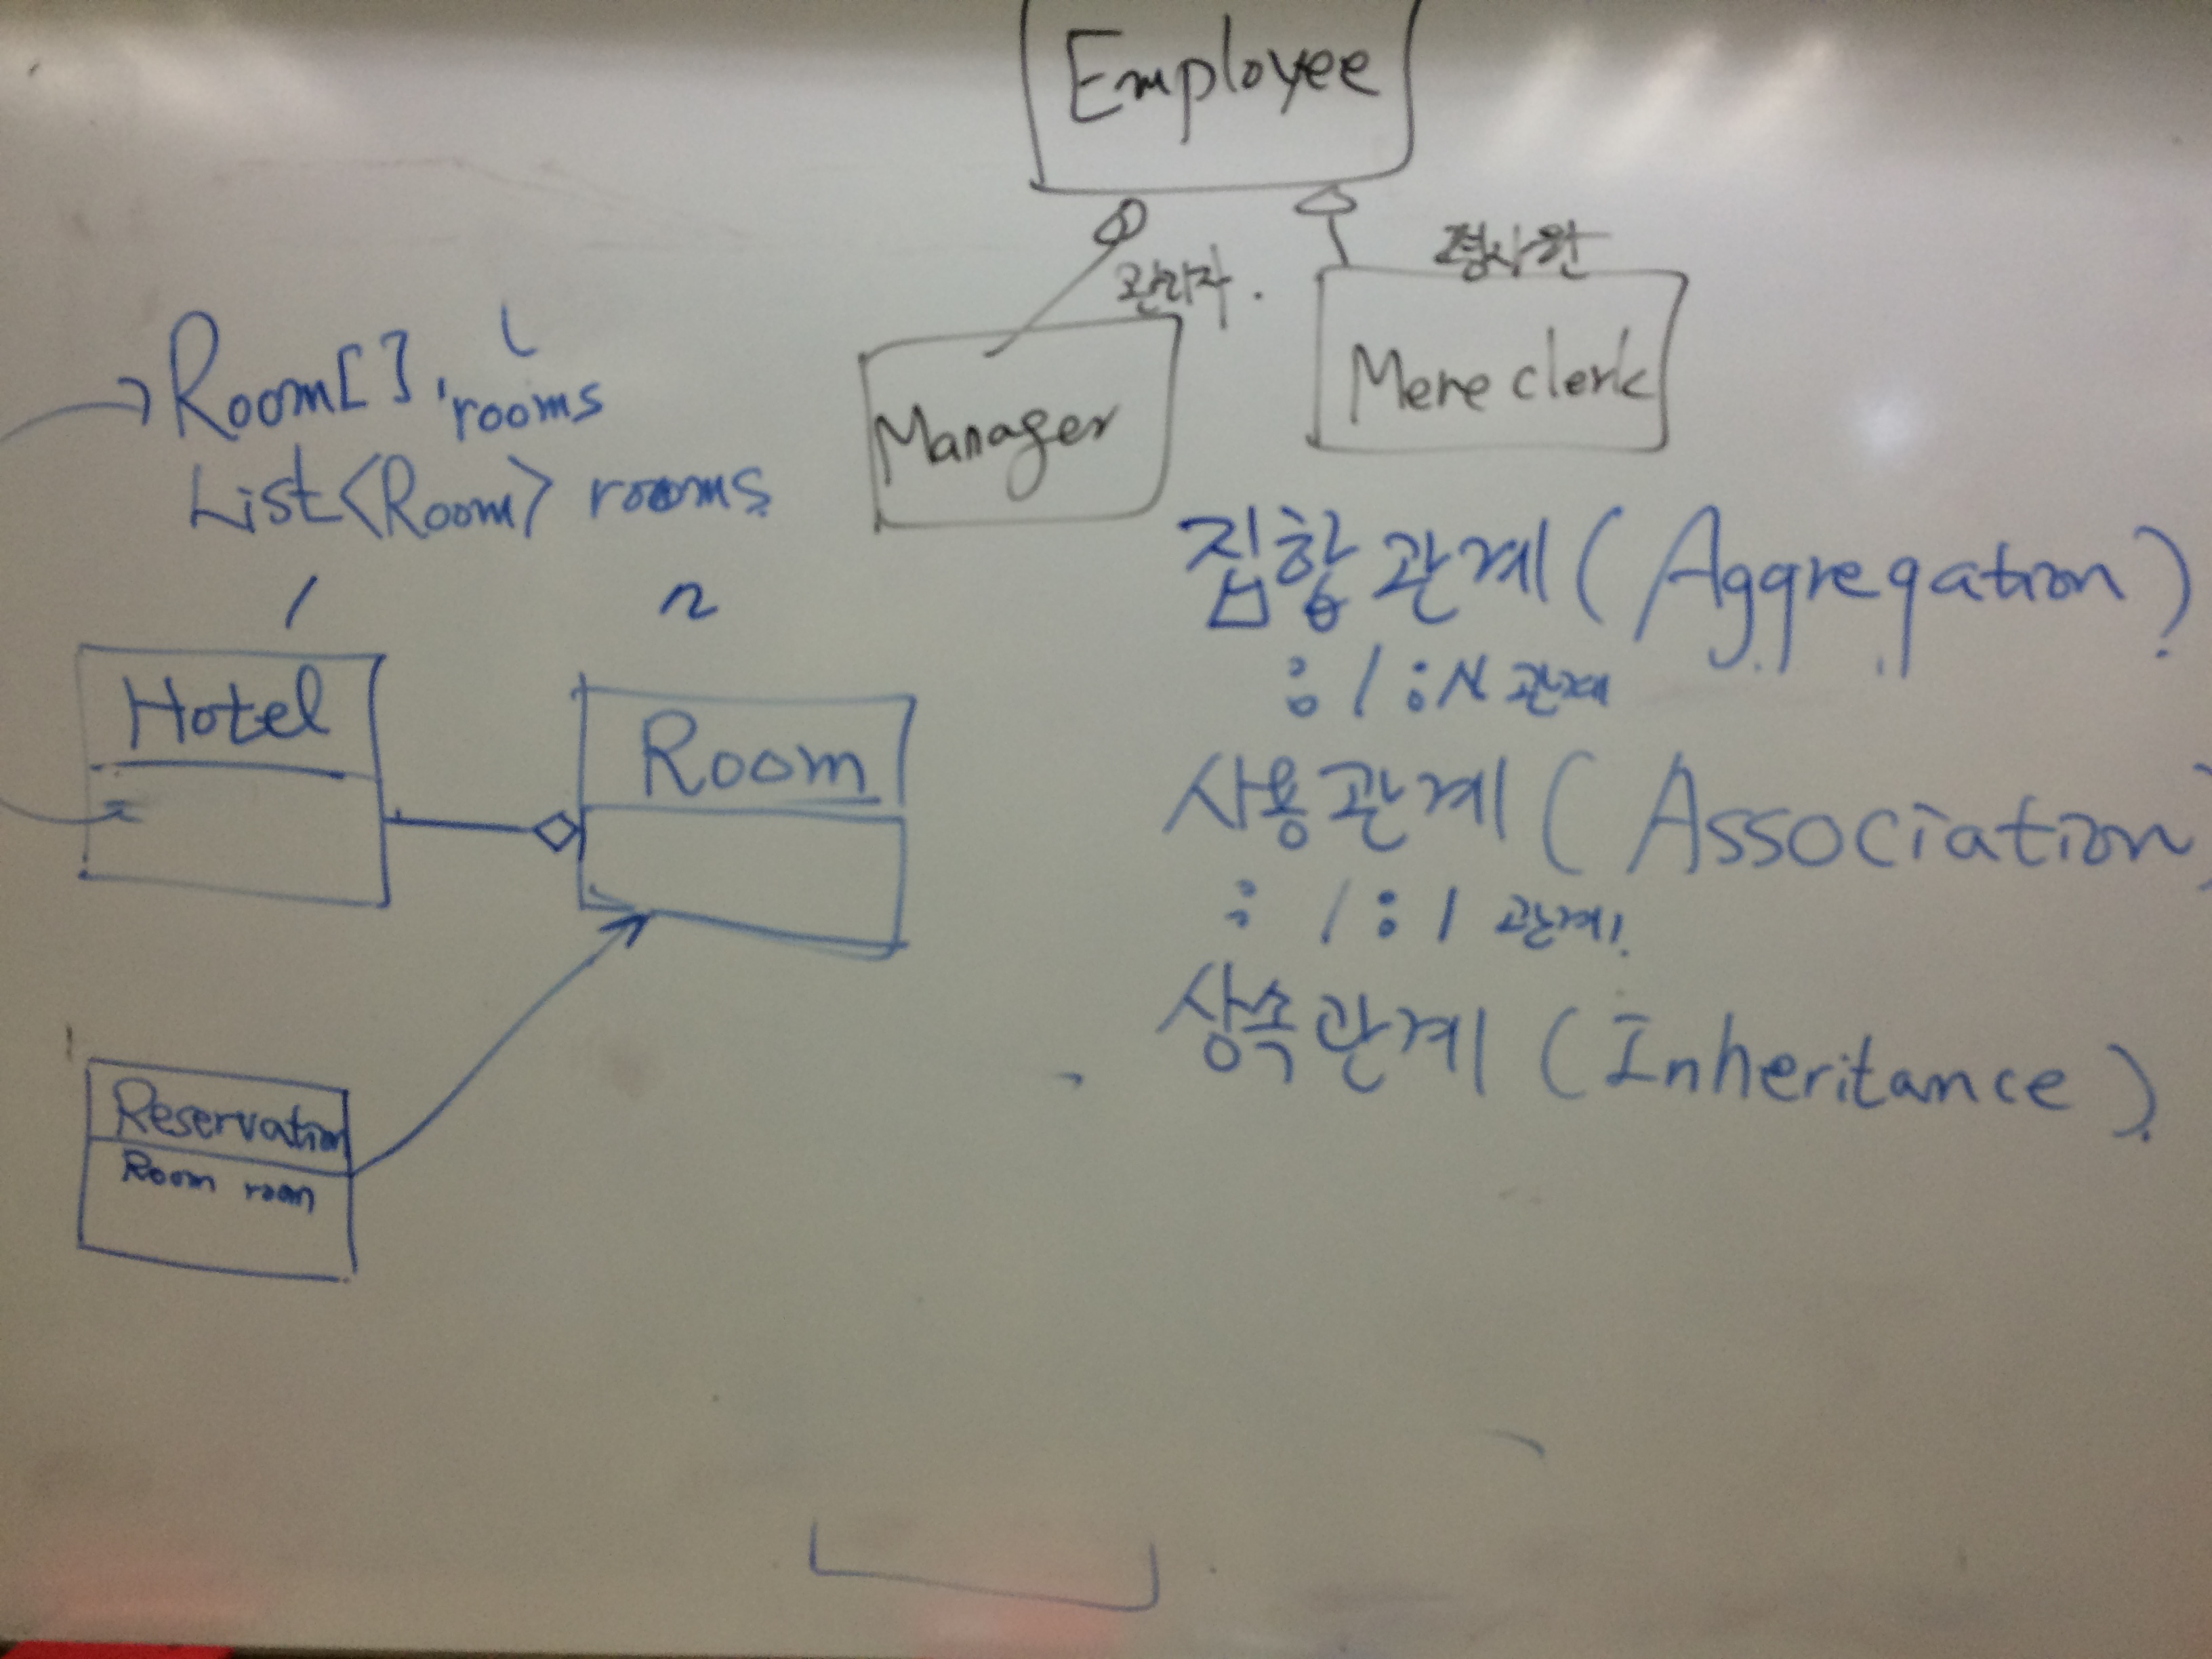 Employee
관리자.
평사원
Manager
Mere clerk
Room[], rooms
List<Room> rooms
1 n
Hotel
Room
Reservation
Room room
집합관계(Aggregation)
: 1:N 관계
사용관계(Association)
: 1:1 관계.
상속관계(Inheritance).